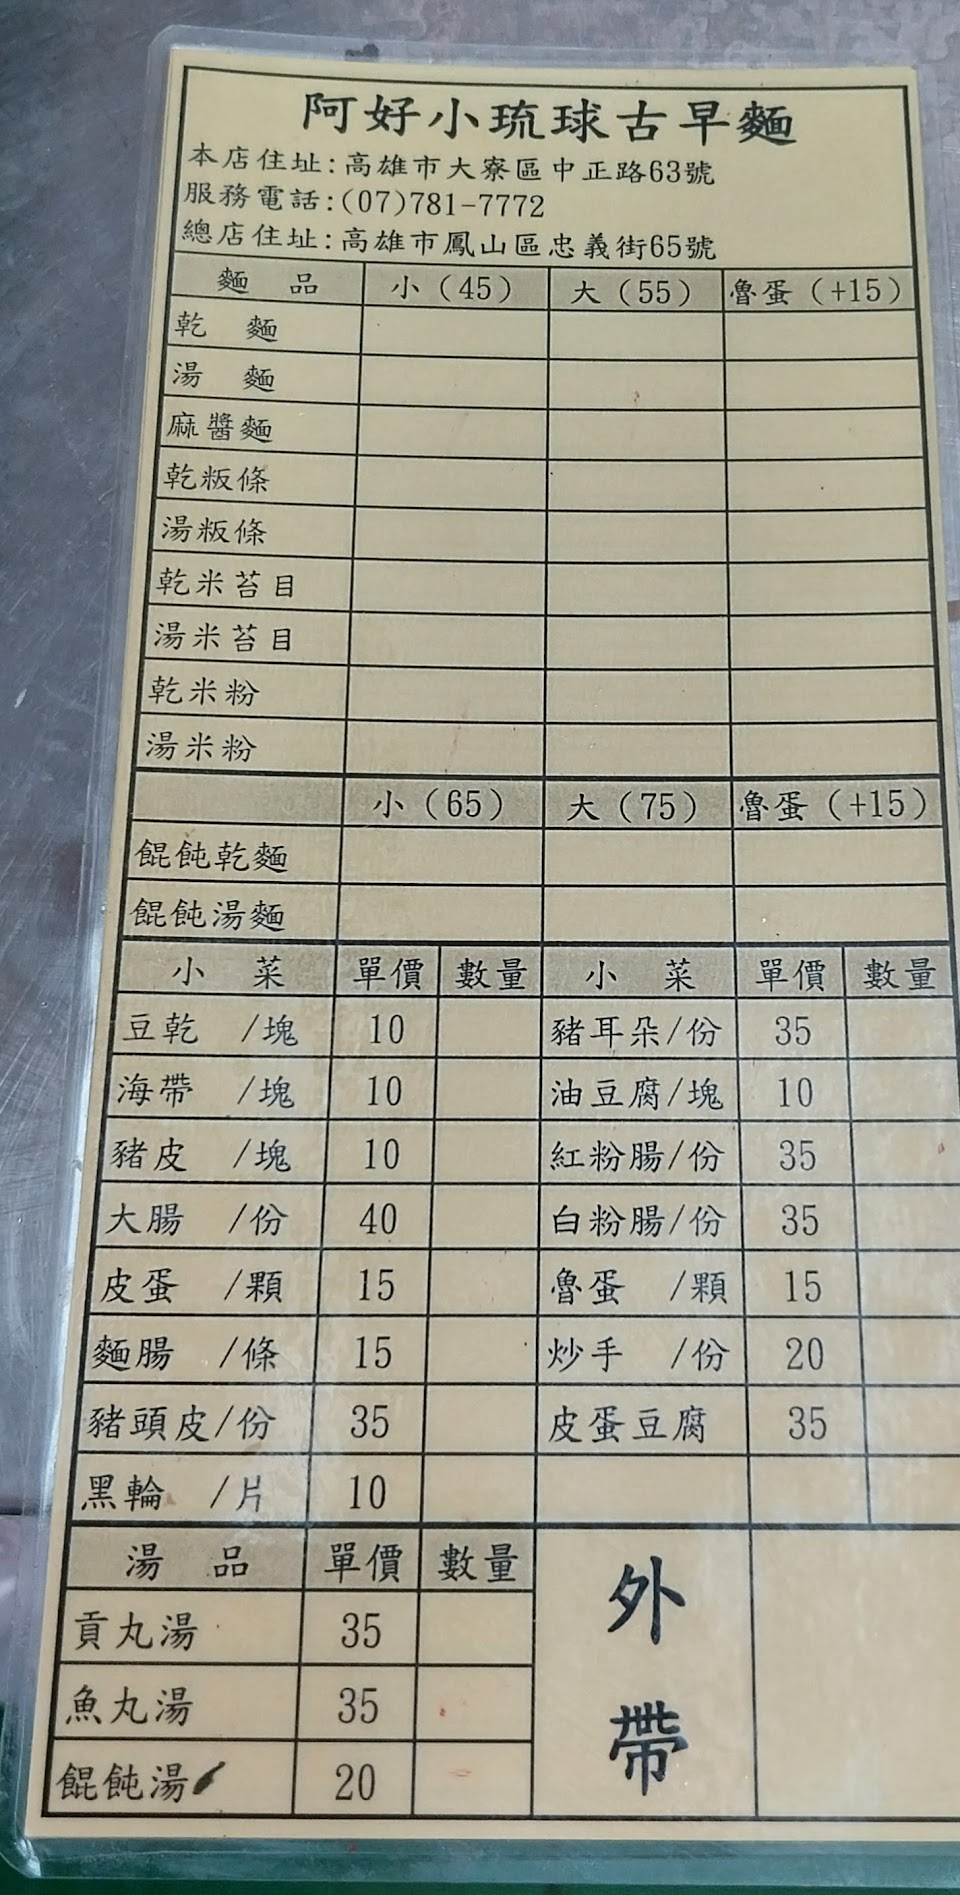 阿好小琉球古早麵
本店住址:高雄市大寮區中正路63號
服務電話:(07)781-7772
總店住址:高雄市鳳山區忠義街65號
麵 品 小（45） 大（55） 魯蛋（+15）
乾 麵
湯 麵
麻醬麵
乾粄條
湯粄條
乾米苔目
湯米苔目
乾米粉
湯米粉
小（65） 大（75） 魯蛋（+15）
餛飩乾麵
餛飩湯麵
小 菜 單價 數量 小 菜 單價 數量
豆乾 /塊 10 豬耳朵/份 35
海帶 /塊 10 油豆腐/塊 10
豬皮 /塊 10 紅粉腸/份 35
大腸 /份 40 白粉腸/份 35
皮蛋 /顆 15 魯蛋 /顆 15
麵腸 /條 15 炒手 /份 20
豬頭皮/份 35 皮蛋豆腐 35
黑輪 /片 10
湯 品 單價 數量
貢丸湯 35
魚丸湯 35
餛飩湯 20
外帶